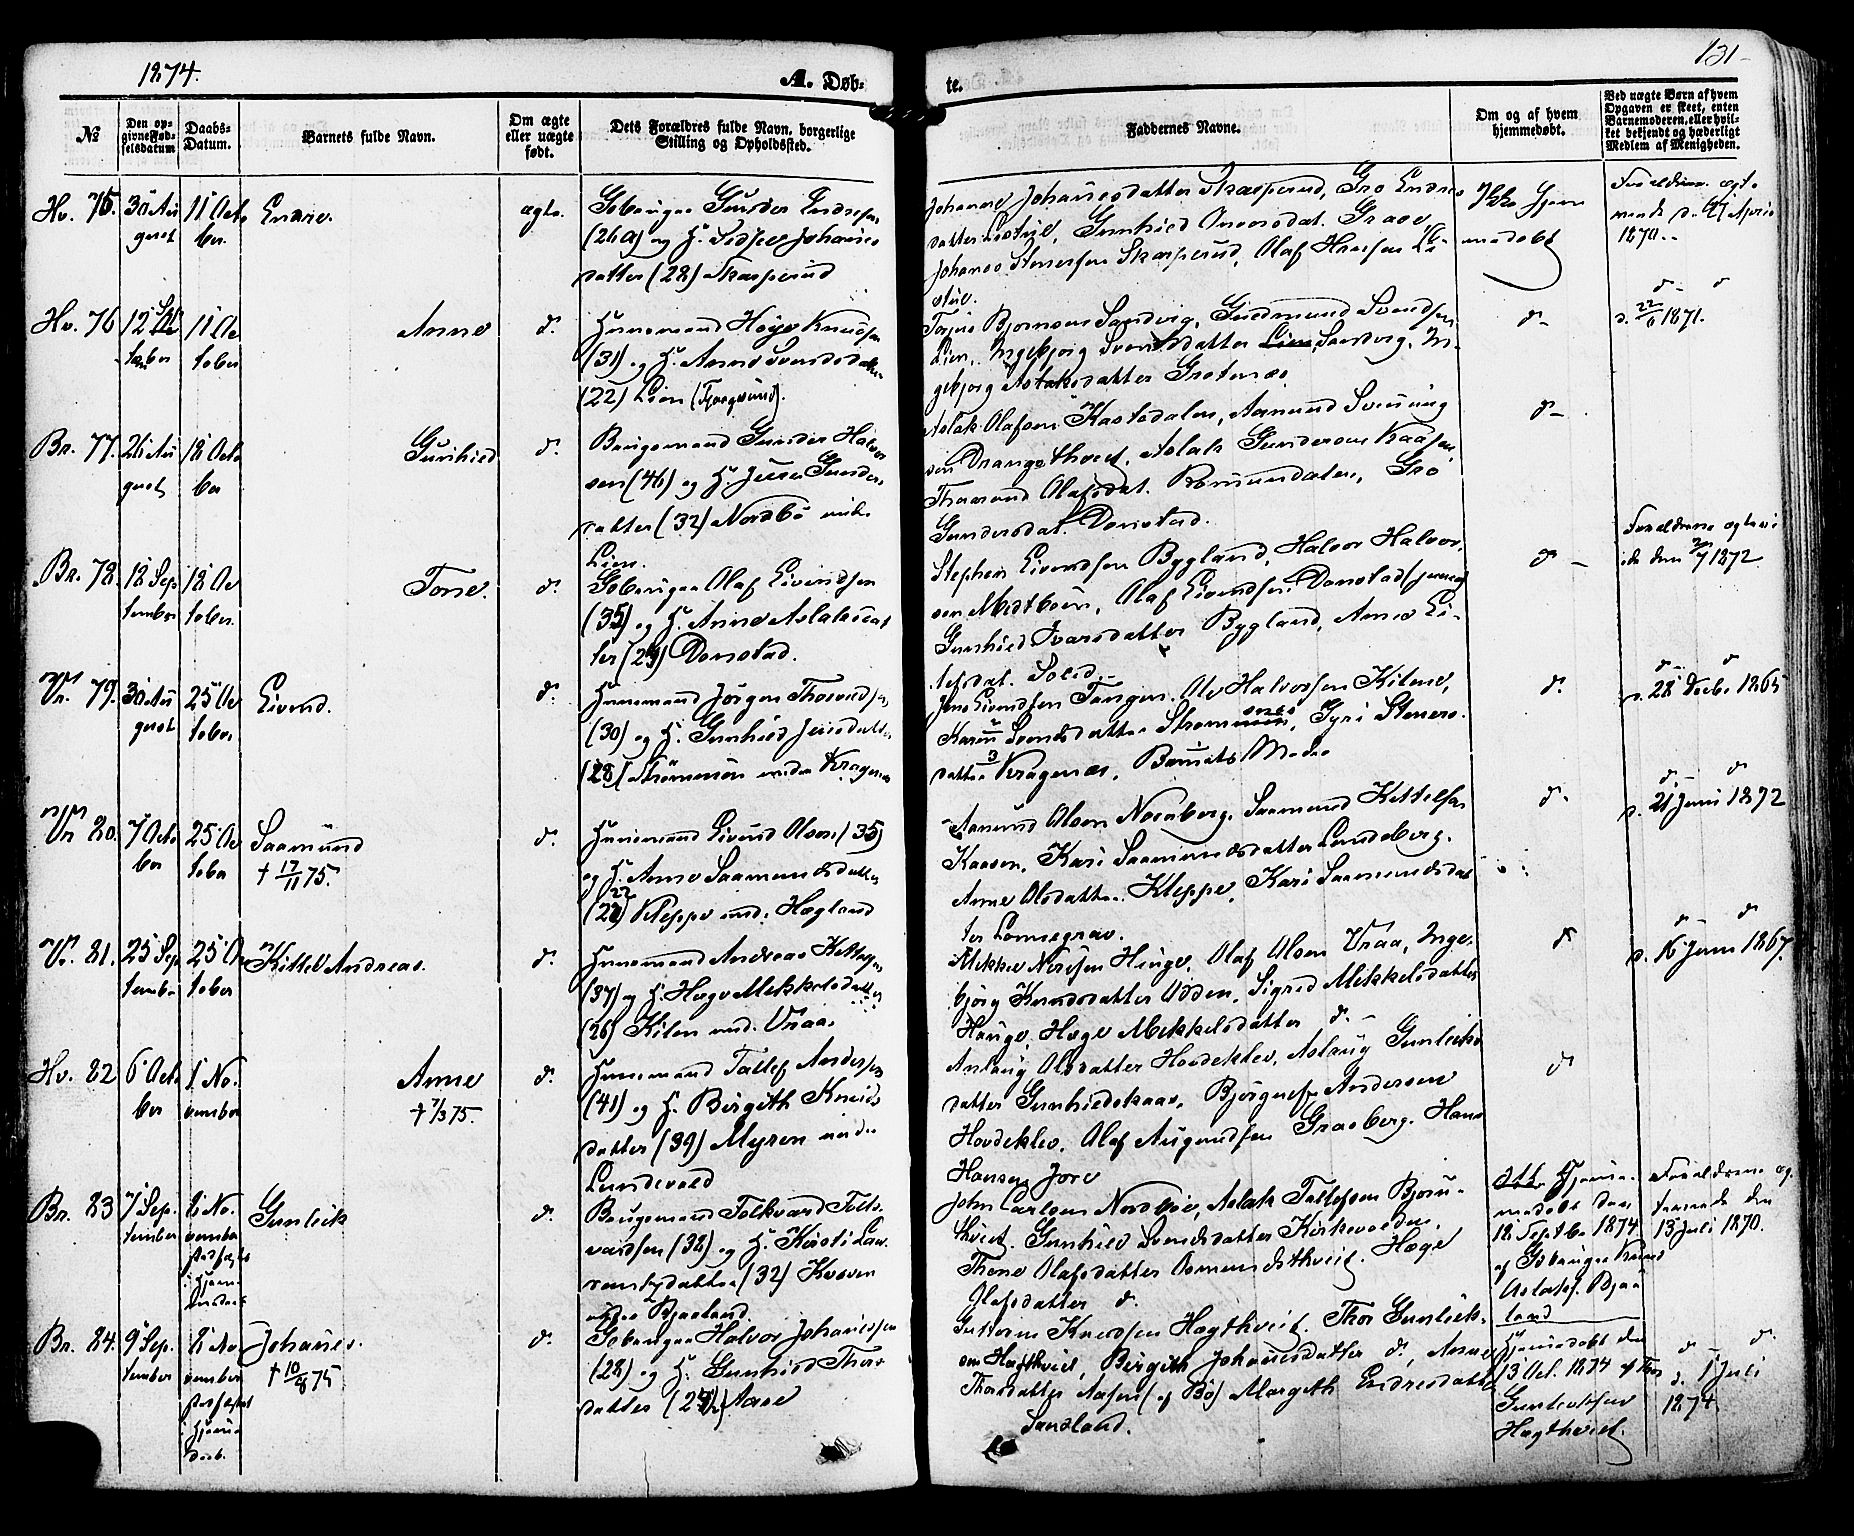 1874.
A. Døb-
te.
131
№
Den op-
givne Fød-
selsdatum
Daabs-
Datum.
Barnets fulde Navn.
Om ægte
eller uægte
født.
Dets Forældres fulde Navn, borgerlige
Stilling og Opholdssted.
Faddernes Navne.
Om og af hvem
hjemmedøbt.
Ved uægte Børn af hvem
Opgaven er skeet, enten
Barnemoderen, eller hvil-
ket bekjendt og hæderligt
Medlem af Menigheden.
Hv. 75.
30 Au
gust
11 Octo
ber.
Endre.
ægte.
Gbruger Gunder Endresen
(26) og H. Johannes
datter (28) Skarperud
Johanne Johannesdatter Skarperud, Gro Endres
datter Listul, Gunhild Onversdat. Graave,
Johannes Stenersen Skarperud, Olaf Hansen Li-
stul.
Ikke hjem
medøbt
Forældrene ægte
viede d. 27 April
1870.
Hv. 76
12 Sep
tember
11 Oc
tober
Anne
d.
Huusmand Høye Knudsen
(31) og H. Anne Svendsdatter
(22) Lien (Fjorgesund).
Torjus Bjørnsen Sandvig, Gudmund Svendsen
Lien, Ingebjørg Svendsdatter Lien Sandvig, In-
gebjørg Aslaksdatter Grotenæs.
d-
d- d
d. 22/6 1871.
Br. 77.
26 Au
gust
18 Octo
ber
Gunhild
d.
Brugsmand Gunder Halvor
sen (46) og H. Gunders
datter (32) Nordbø under
Lien.
Aslak Olafsen Kastedalen, Aamund Svenung
sen Drangethveit, Aslak Gundersen Kaasen,
Thoraand Olafsdat. Romundalen, Gro
Gundersdat. Donstad.
d-
Br. 78.
18 Sep
tember
18 Oc
tober.
Tone.
d.
Gbruger Olaf Eivindsen
(35) og H. Anne Aslaksdat
ter (29) Donstad.
Stephen Eivendsen Bygland, Halvor Halvor
sen Midtbøen, Olaf Eivendsen Donstad
Gunhild Ivarsdatter Bygland, Anne Ei-
lefsdat. Solid.
d -
Forældrene ægtevi
ede den 7 1872
Vr. 79.
30 Au
gust
25 Oc
tober
Eivend.
d.
Huusmand Jørgen Thorvildsen
(30) og H. Gunhild Jensdatter
(28) Strømmen under Kragenæs
Jens Eivendsen Tangen. Ole Halvorsen Kilene,
Karen Svendsdatter Strømmen, Gyri Steners
datter Kragenæs, Barnets Moder
d.
d d
d. 28 Decbr 1865
Vr 80.
7 Octo
ber
25 Oc
tober
Saamund
† 17/11 75.
d.
Huusmand Eivind Olsen (35)
og H. Anne Saamundsdatter
(27) 22 Kleppe und. Hægland
Aamund Olsen Nordberg, Saamund Kittelsen
Kaasen, Kari Saamundsdatter Lundeberg.
Anne Olsdatter Kleppe, Kari Saamundsdat
ter Lomsegrav.
d.
d - d
d. 21 Juni 1872
Vr. 81.
25 Sep
tember
25 Oc
tober
Kittel Andreas.
d.
Huusmand Andreas Kittelsen
(37) og H. Hæge Mikkelsdatter
(26) Kilen und. Vraa.
Mikkel Nielsen Hauge, Olaf Olsen Vraa, Inge-
bjørg Knudsdatter Odden, Sigrid Mikkelsdatter
Hauge, Hæge Mikkelsdatter d. -
d
d - d
d. 16 Juni 1867.
Hv. 82
6 Octo
ber
1 No-
vember
Anne
† 7/3 75.
d.
Huusmand Tallef Andersen
(41) og H. Birgith Knuds
datter (39) Myren under
Lundevald
Anlaug Olsdatter Hovdeklev, Aslaug Gunleiks
datter Gunhildskaas, Bjørgulf Andersen
Hovdeklev, Olaf Augundsen Graaberg, Hans
Hansen Jore
d
Br. 83
7 Sep.
tember
8 No-
vember
stadfæstet
i hjem
medøbt
Gunleik
d.
Brugsmand Folkvard Folk-
vardsen (38) og H. Kirsti Lau
rentzdatter (32) Kosven
under Bjaaland.
John Carlsen Nordbøe, Aslak Tallefsen Bjørn-
thveit, Gunhild Svendsdatter Kirkevolden,
Thone Olafsdatter Osmundsthveit. Hæge
Olafsdatter d.
Hjem-
medøbt den
18 Septbr. 1874
af Gbruger Knud
Aslaks. Bjaa
land
Forældrene æg-
teviede den
13 Juli 1870.
Br. 84.
9 Sep.
tember
8 No
vember
stadfæstet
i hjem
døb.
Johannes.
† 10/8 75
d.
Gbruger Halvor Johannesen
(28) og H. Gunhild Thors
datter (25) Aase
Guttorm Knudsen Hægthveit. Thor Gunleik-
sen Hægthveit, Birgith Johannesdatter d., Anne
Thorsdatter Aasen (af Bø) Margith Endresdatter
Sandland.
Hjemmedøbt den
13 Oct. 1874 af Thor
Gunleiksen
Hægthveit.
d - d.
d. 1 Juli
1874